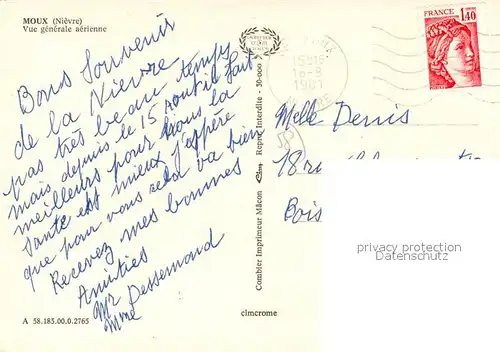 MOUX (Nièvre)
Vue générale aérienne
Bons Souvenir
de la Nièvre
pas très beau temps
mais depuis le 15 Août il fait
meilleurs pour nous la
santé est mieux j'appère
que pour vous cela va bien
Recevez mes bonnes
Amitiés
Mr
Mme Dessemond
A 58.185.00.0.2765
Combier Imprimeur Mâcon
Repro Interdite - 30-000
cimcrome
FRANCE
1,40
MOUX
15H15
1981
Melle Denis
18 rue
Bois
privacy protection
Datenschutz